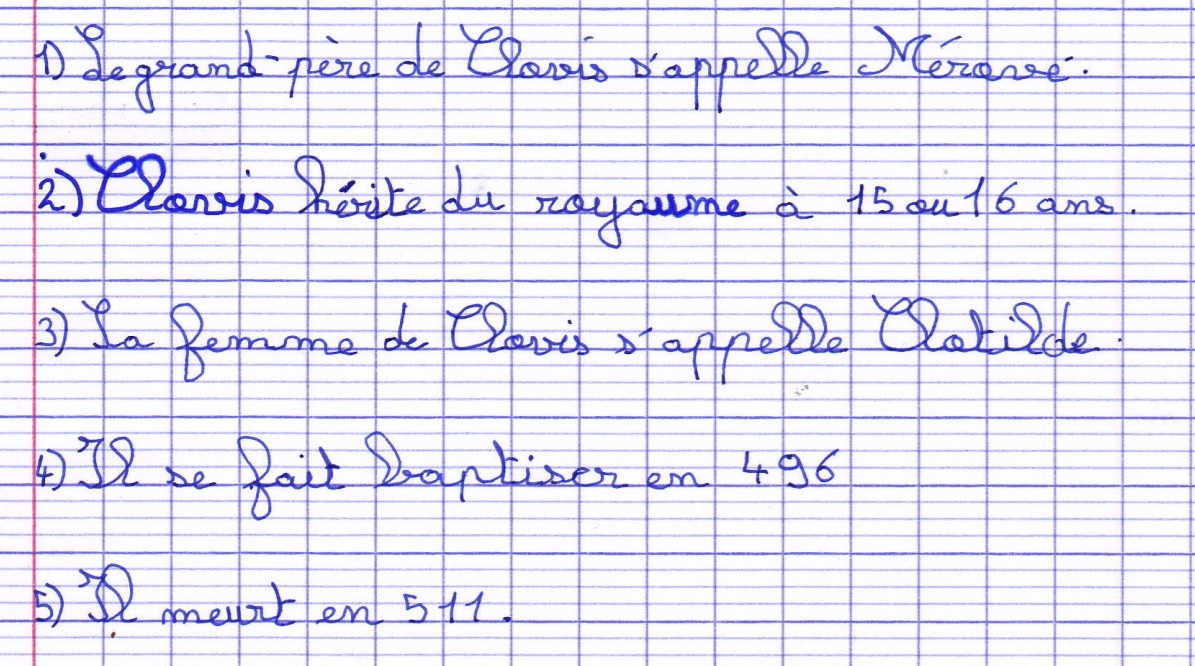 1) Le grand-père de Clovis s'appelle Mérové.
2) Clovis hérite du royaume à 15 ou 16 ans.
3) La femme de Clovis s'appelle Clotilde.
4) Il se fait baptiser en 496
5) Il meurt en 511.